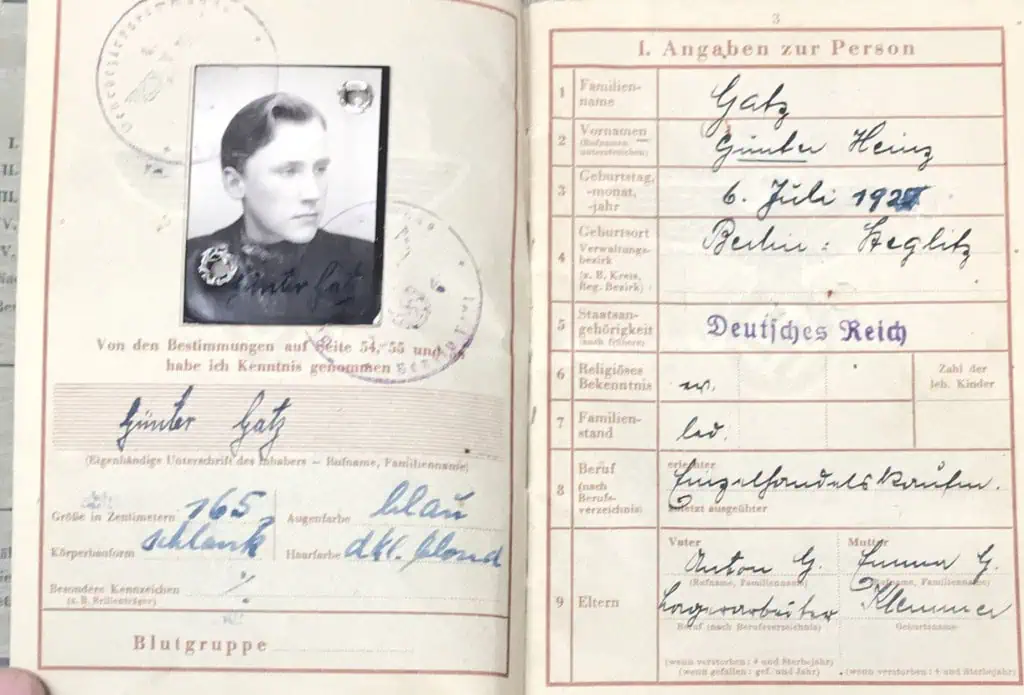 Günter Gatz
Von den Bestimmungen auf Seite 54, 55 und
habe ich Kenntnis genommen
Günter Gatz
(Eigenhändige Unterschrift des Inhabers – Rufname, Familienname)
Größe in Zentimetern 165 Augenfarbe blau
Körperbauform schlank Haarfarbe dkl. blond
Besondere Kennzeichen ·/.
(z. B. Brillenträger)
Blutgruppe
3
I. Angaben zur Person
1 Familien-
name
Gatz
2 Vornamen
(Rufnamen
unterstreichen)
Günter Heinz
3 Geburtstag,
-monat,
-jahr
6. Juli
4 Geburtsort
Verwaltungs-
bezirk
(z. B. Kreis,
Reg. Bezirk)
Berlin: Steglitz
5 Staatsan-
gehörigkeit
(auch frühere)
Deutsches Reich
6 Religiöses
Bekenntnis
ev.
Zahl der
leb. Kinder
7 Familien-
stand
led.
8 Beruf
(nach
Berufs-
verzeichnis)
erlernter
Einzelhandelskaufm.
zuletzt ausgeübter
9 Eltern
Vater Mutter
Anton G. Emma G.
(Rufname, Familienname) (Rufname, Familienname)
Lagerarbeiter Klemmer
Beruf (nach Berufsverzeichnis) Geburtsname
(wenn verstorben: + und Sterbejahr)
(wenn gefallen: gef. und Jahr) (wenn verstorben: + und Sterbejahr)